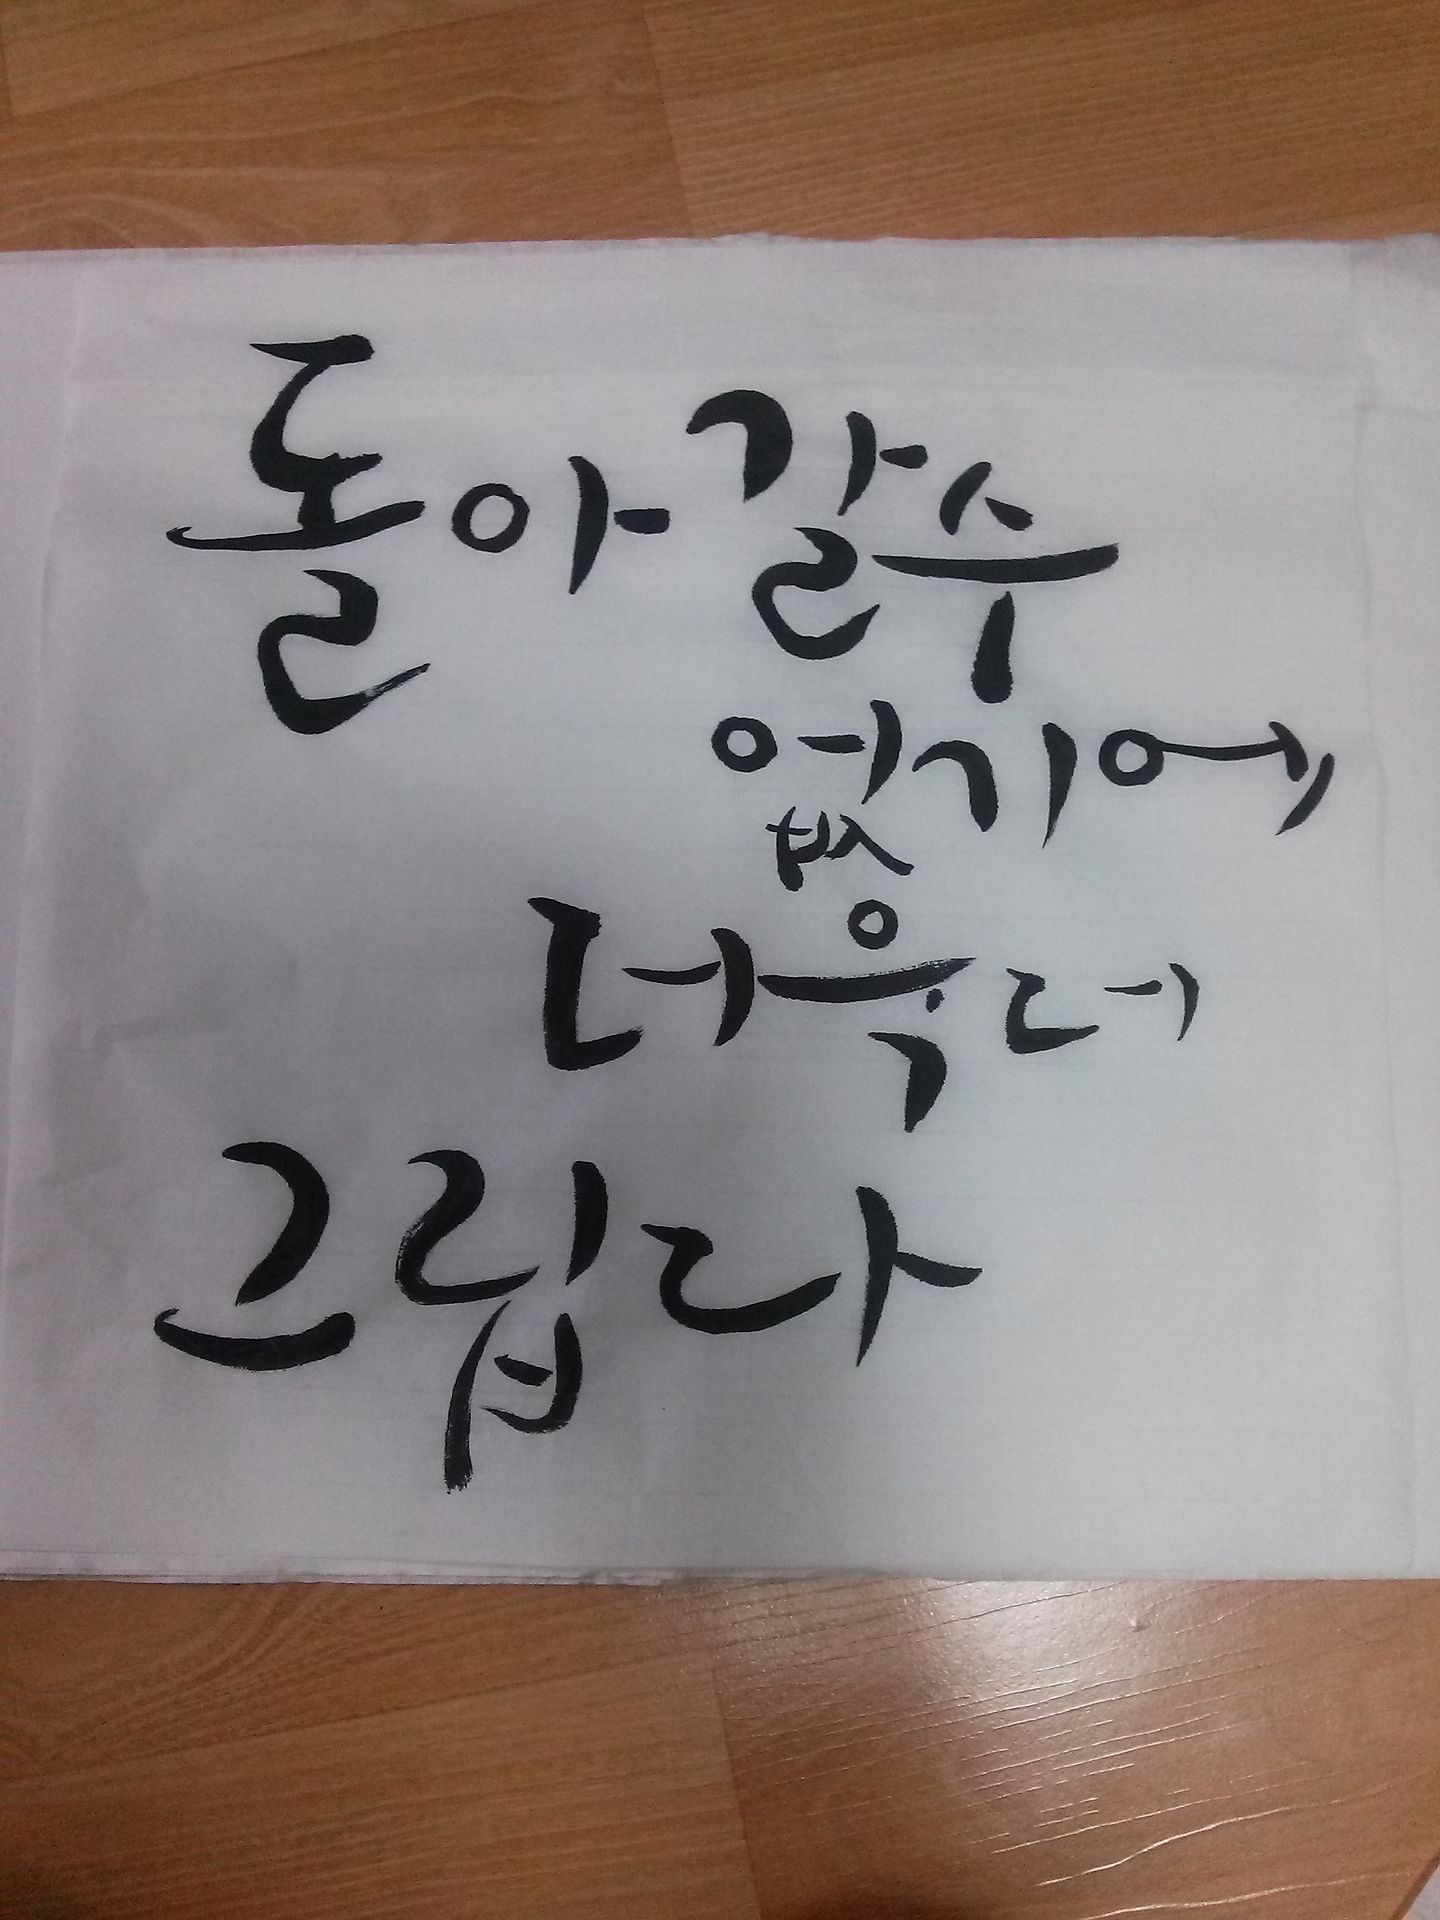 돌아갈수
없기에
더욱더
그립다